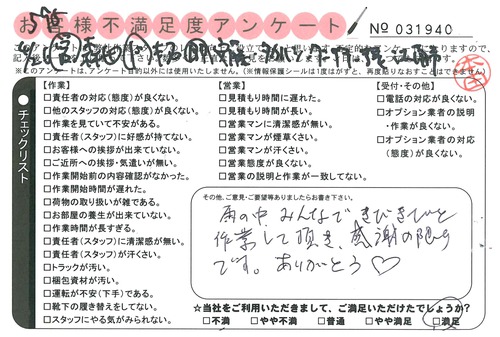 お客様不満足度アンケート
No 031940
※このアンケートは、アンケート目的以外には使用いたしません。(※情報保護シールは1度はがすと、再度貼りなおすことはできません)
チェックリスト
【作業】
□責任者の対応(態度)が良くない。
□他のスタッフの対応(態度)が良くない。
□作業を見ていて不安がある。
□責任者(スタッフ)に好感が持てない。
□お客様への挨拶が出来ていない。
□ご近所への挨拶・気遣いが無い。
□作業開始前の内容確認がなかった。
□作業開始時間が遅れた。
□荷物の取り扱いが雑である。
□お部屋の養生が出来ていない。
□作業時間が長すぎる。
□責任者(スタッフ)に清潔感が無い。
□責任者(スタッフ)が汗くさい。
□トラックが汚い。
□梱包資材が汚い。
□運転が不安(下手)である。
□靴下の履き替えをしてない。
□スタッフにやる気がみられない。
【営業】
□見積もり時間に遅れた。
□見積もり時間が長い。
□営業マンに清潔感が無い。
□営業マンが煙草くさい。
□営業マンが汗くさい。
□営業態度が良くない。
□営業の説明と作業が一致してない。
【受付・その他】
□電話の対応が良くない。
□オプション業者の説明
・作業が良くない。
□オプション業者の対応
(態度)が良くない。
その他、ご意見・ご要望等ありましたらお書き下さい。
雨の中、みんなできびきびと
作業して頂き、感謝の限り
です。ありがとう♡
☆当社をご利用いただきまして、ご満足いただけたでしょうか?
□不満 □やや不満 □普通 □やや満足 □満足